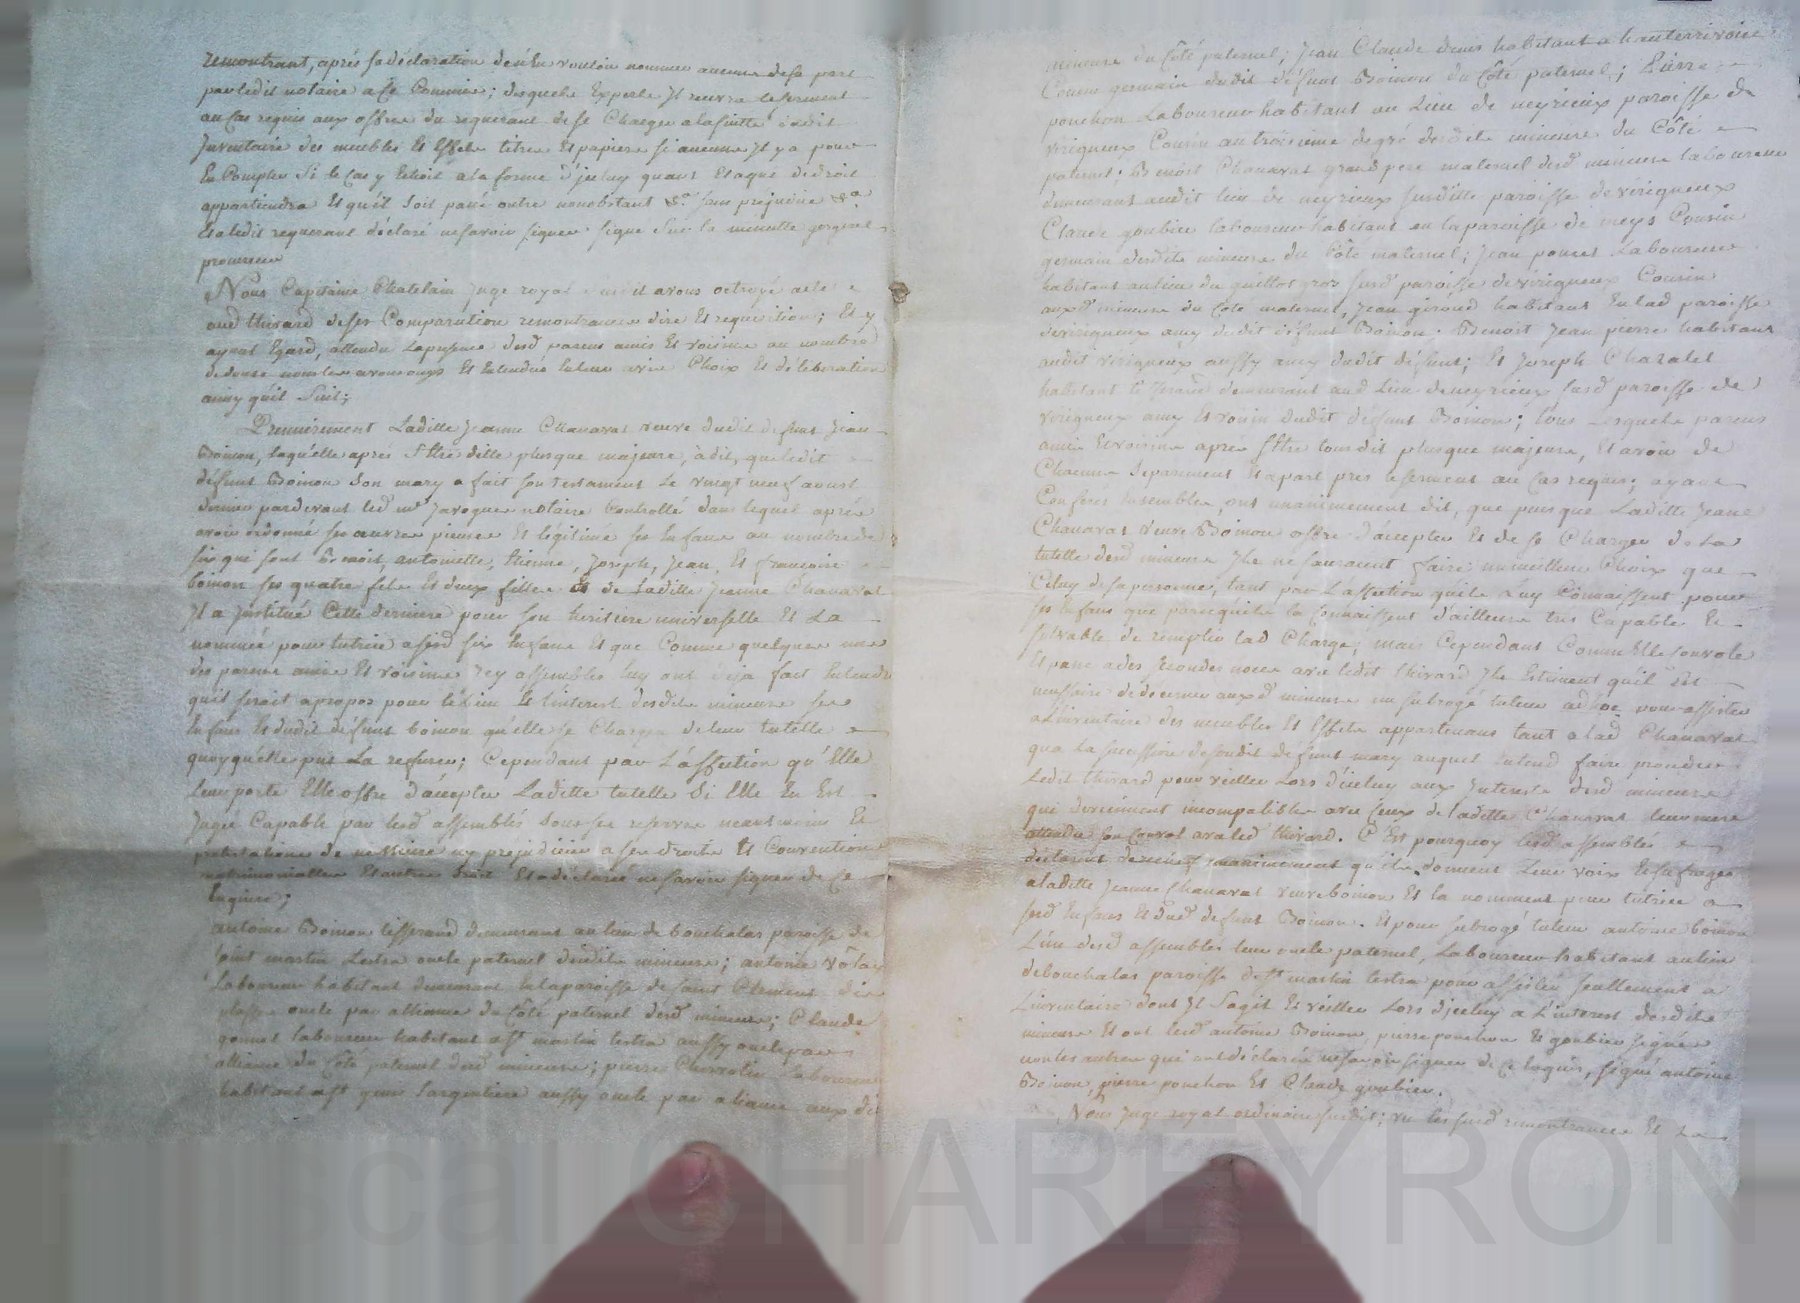 remontrant, après sa déclaration de n'en vouloir nommer aucune de sa part
par ledit notaire a ce Commise; desquels Experts Jl recevra le serment
au Cas requis aux offres du requerant de se Charger a la suitte dudit
Jnventaire des meubles Et Effets titres Et papiers si aucuns Jl y a pour
En Compter Si le Cas y Echoit a la forme d'jceluy quant Et a qui de droit
appartiendra Et qu'il soit passé outre nonobstant &a sans préjudice &a
Et a ledit requerant déclaré ne savoir signer signé Sur la minutte
procureur
Nous Capitaine Chatelain Juge royal susdit avons octroyé acte
aud thivard de ses Comparution remontrances dire Et requisition; Et y
ayant Egard, attendu La presence desd parens amis Et voisins au nombre
de douze nous les avons ouys Et Entendus En leur avis Choix Et déliberation
ainsy qu'il suit;
Premierement Laditte Jeanne Chanavat veuve dudit defunt Jean
Boinon, laquelle après Etre ditte plus que majeure, à dit, que ledit
défunt Boinon son mary a fait son testament Le vingt neuf aoust
dernier pardevant led me Javogues notaire Controllé dans lequel après
avoir ordonné ses œuvres pieuses Et légitimé ses Enfans au nombre de
six qui sont Benoit, antoinette, Etienne, Joseph, Jean, Et françoise
boinon ses quatre fils Et deux filles Et de Laditte Jeanne Chanavat
Jl a Jnstitué Cette derniere pour son heritiere universelle Et La
nommée pour tutrice a sesd six Enfans Et que Comme quelques uns
des parens amis Et voisins Jcy assemblés luy ont déja fait Entendre
quil seroit a propos pour le bien Et l'interest desdits mineurs ses
Enfans Et dudit défunt boinon qu'elle se Chargea de leur tutelle
quoy qu'elle put La refuser; Cependant par L'affection qu'Elle
Leur porte Elle offre d'accepter Laditte tutelle Si Elle En Est
Jugée Capable par lesd assemblés sous ses reserves neantmoins Et
protestations de ne Nuire ny prejudicier a ses droits Et Conventions
matrimonialles Et autres droits Et a déclaré ne savoir signer de Ce
Enquise;
antoine Boinon tisserand demeurant au lieu de bouchalas paroisse de
saint martin Lestra oncle paternel desdits mineurs; antoine
Laboureur habitant demeurant En la paroisse de saint Clement
oncle par alliance du Côté paternel desd mineurs; Claude
laboureur habitant a st martin lestra aussy oncle par
alliance du Côté paternel desd mineurs; pierre Laboureur
habitant a st genis Largentiere aussy oncle par aliance aux dits
mineurs du Côté paternel; Jean Claude denis habitant a hauterrivoire
Cousin germain dudit défunt Boinon du Côté paternel; Pierre
ponchon Laboureur habitant au Lieu de neyrieux paroisse de
virigneux Cousin au troisieme degré desdits mineurs du Côté
paternel; Benoist Chanavat grand pere maternel desd mineurs laboureur
demeurant audit lieu de neyrieux susditte paroisse de virigneux
Claude goubier laboureur habitant en la paroisse de meys Cousin
germain desdits mineurs du Côté maternel; Jean poncet Laboureur
habitant au lieu du guillot susd paroisse de virigneux Cousin
auxd mineurs du Coté maternel; Jean giroud habitant En lad paroisse
de virigneux amy dudit défunt Boinon; Benoit Jean pierre habitant
audit virigneux aussy amy dudit défunt; Et Joseph Chazalet
habitant tisserand demeurant aud Lieu de neyrieux susd paroisse de
virigneux amy Et voisin dudit défunt Boinon; tous Lesquels parens
amis Et voisins après Etre tous dit plus que majeurs, Et avoir de
Chacun separement Et a part pris le serment au Cas requis; ayant
Conferés Ensembles, ont unanimement dit, que puisque Laditte Jeane
Chanavat veuve Boinon offre d'accepter Et de se Charger de La
tutelle desd mineurs Jls ne sauroient faire un meilleur Choix que
Celuy de sa personne, tant par L'affection quils Luy Connaissent pour
ses Enfans que parcequils la Connaissent d'ailleurs tres Capable Et
solvable de remplir lad Charge; mais Cependant Comme Elle Convole
Et passe a des secondes noces avec ledit thivard Jls Estiment qu'il Est
necessaire de decerner auxd mineurs un subrogé tuteur adhoc pour assister
a L'inventaire des meubles Et Effets appartenans tant a lad Chanavat
qua La succession de sondit defunt mary auquel Entend faire proceder
Ledit thivard pour veiller Lors d'iceluy aux Jnterets desd mineurs
qui deviennent incompatibles avec Ceux de laditte Chanavat leur mere
attendu son Convol avec led thivard. C'Est pourquoy lesd assemblés
déclarent unanimement qu'ils donnent Leur voix Et sufrages
a laditte Jeanne Chanavat veuve boinon Et la nomment pour tutrice a
sesd Enfans Et dud defunt Boinon. Et pour subrogé tuteur antoine boinon
L'un desd assemblés leur oncle paternel, Laboureur habitant au lieu
de bouchalas paroisse de st martin lestra pour assister seullement a
L'inventaire dont Jl S'agit Et veiller Lors d'jceluy a L'interest desdits
mineurs Et ont lesd antoine Boinon, pierre ponchon Et goubier signés
non les autres qui ont déclarés ne savoir signer de Ce Enquis, signé antoine
Boinon, pierre ponchon Et Claude goubier.
Nous Juge royal ordinaire susdit; vu les susd remontrances Et La
Pascal CHAREYRON